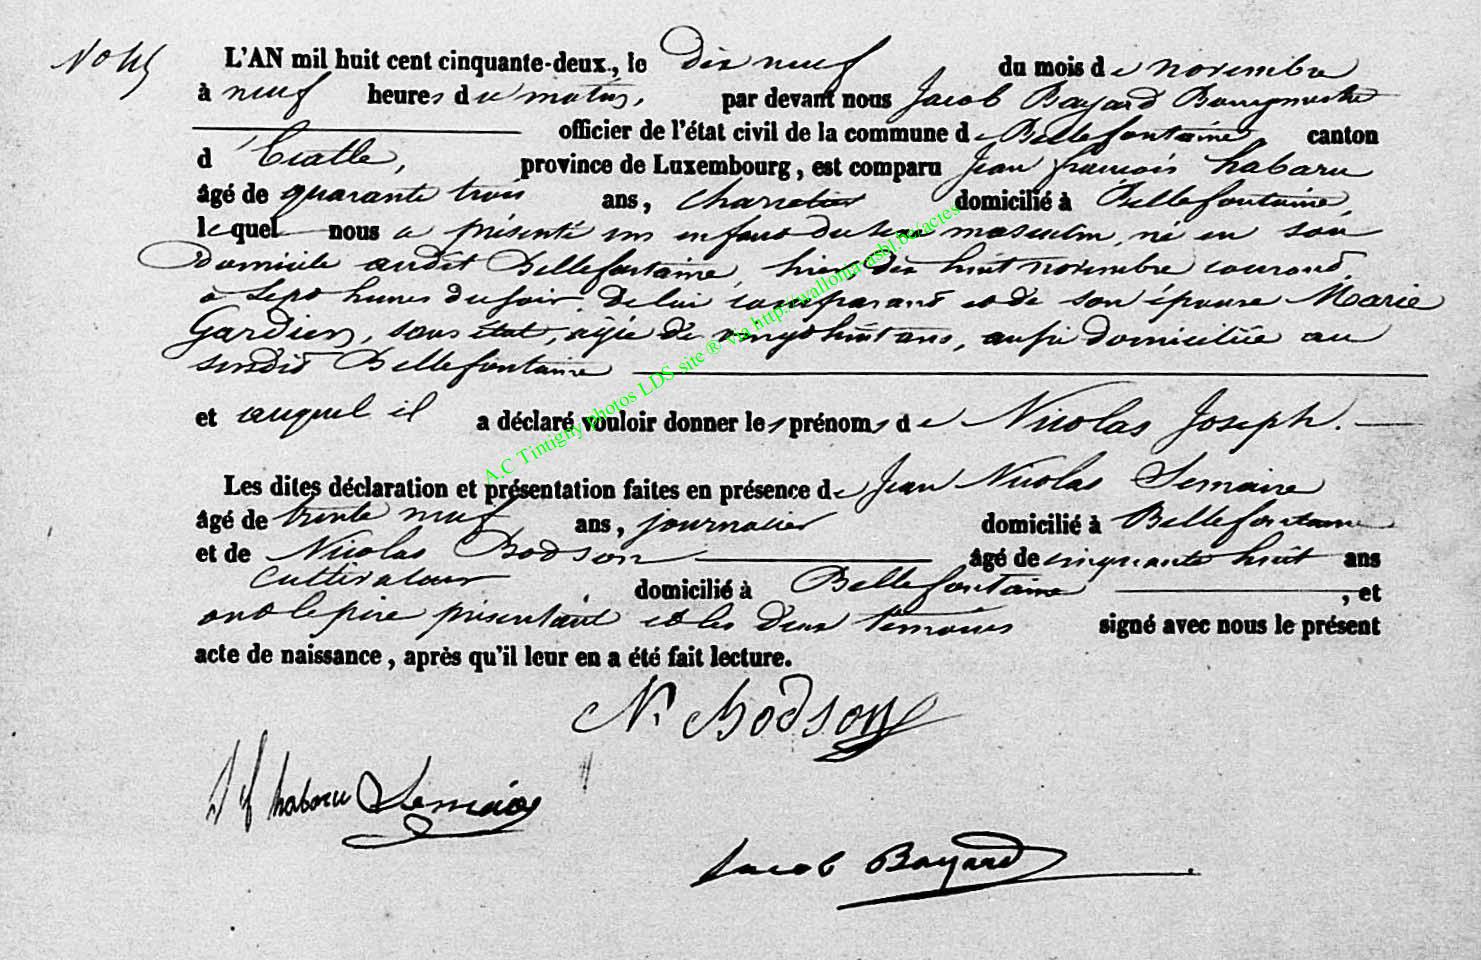 No 45
L'AN mil huit cent cinquante-deux, le dix neuf du mois de novembre
à neuf heures du matin, par devant nous Jacob Bayard Bourgmestre
officier de l'état civil de la commune de Bellefontaine, canton
d'Etalle, province de Luxembourg, est comparu Jean françois habaru
âgé de quarante trois ans, charretier domicilié à Bellefontaine,
lequel nous a présenté un enfant du sexe masculin, né en son
domicile audit Bellefontaine, hier dix huit novembre courant,
à sept heures du soir, de lui comparant et de son épouse Marie
Gardien, sans état, agée de vingt huit ans, aussi domiciliée au
susdit Bellefontaine
et auquel il a déclaré vouloir donner les prénoms de Nicolas Joseph.
Les dites déclaration et présentation faites en présence de Jean Nicolas Lemaire
âgé de trente neuf ans, journalier domicilié à Bellefontaine
et de Nicolas Bodson âgé de cinquante huit ans
cultivateur domicilié à Bellefontaine, et
ont le père présentant et les deux témoins signé avec nous le présent
acte de naissance, après qu'il leur en a été fait lecture.
N. Bodson
J f habaru Lemaire
Jacob Bayard
A.C Tintigny photos LDS site ® via http://wallonia-asbl.be/actes